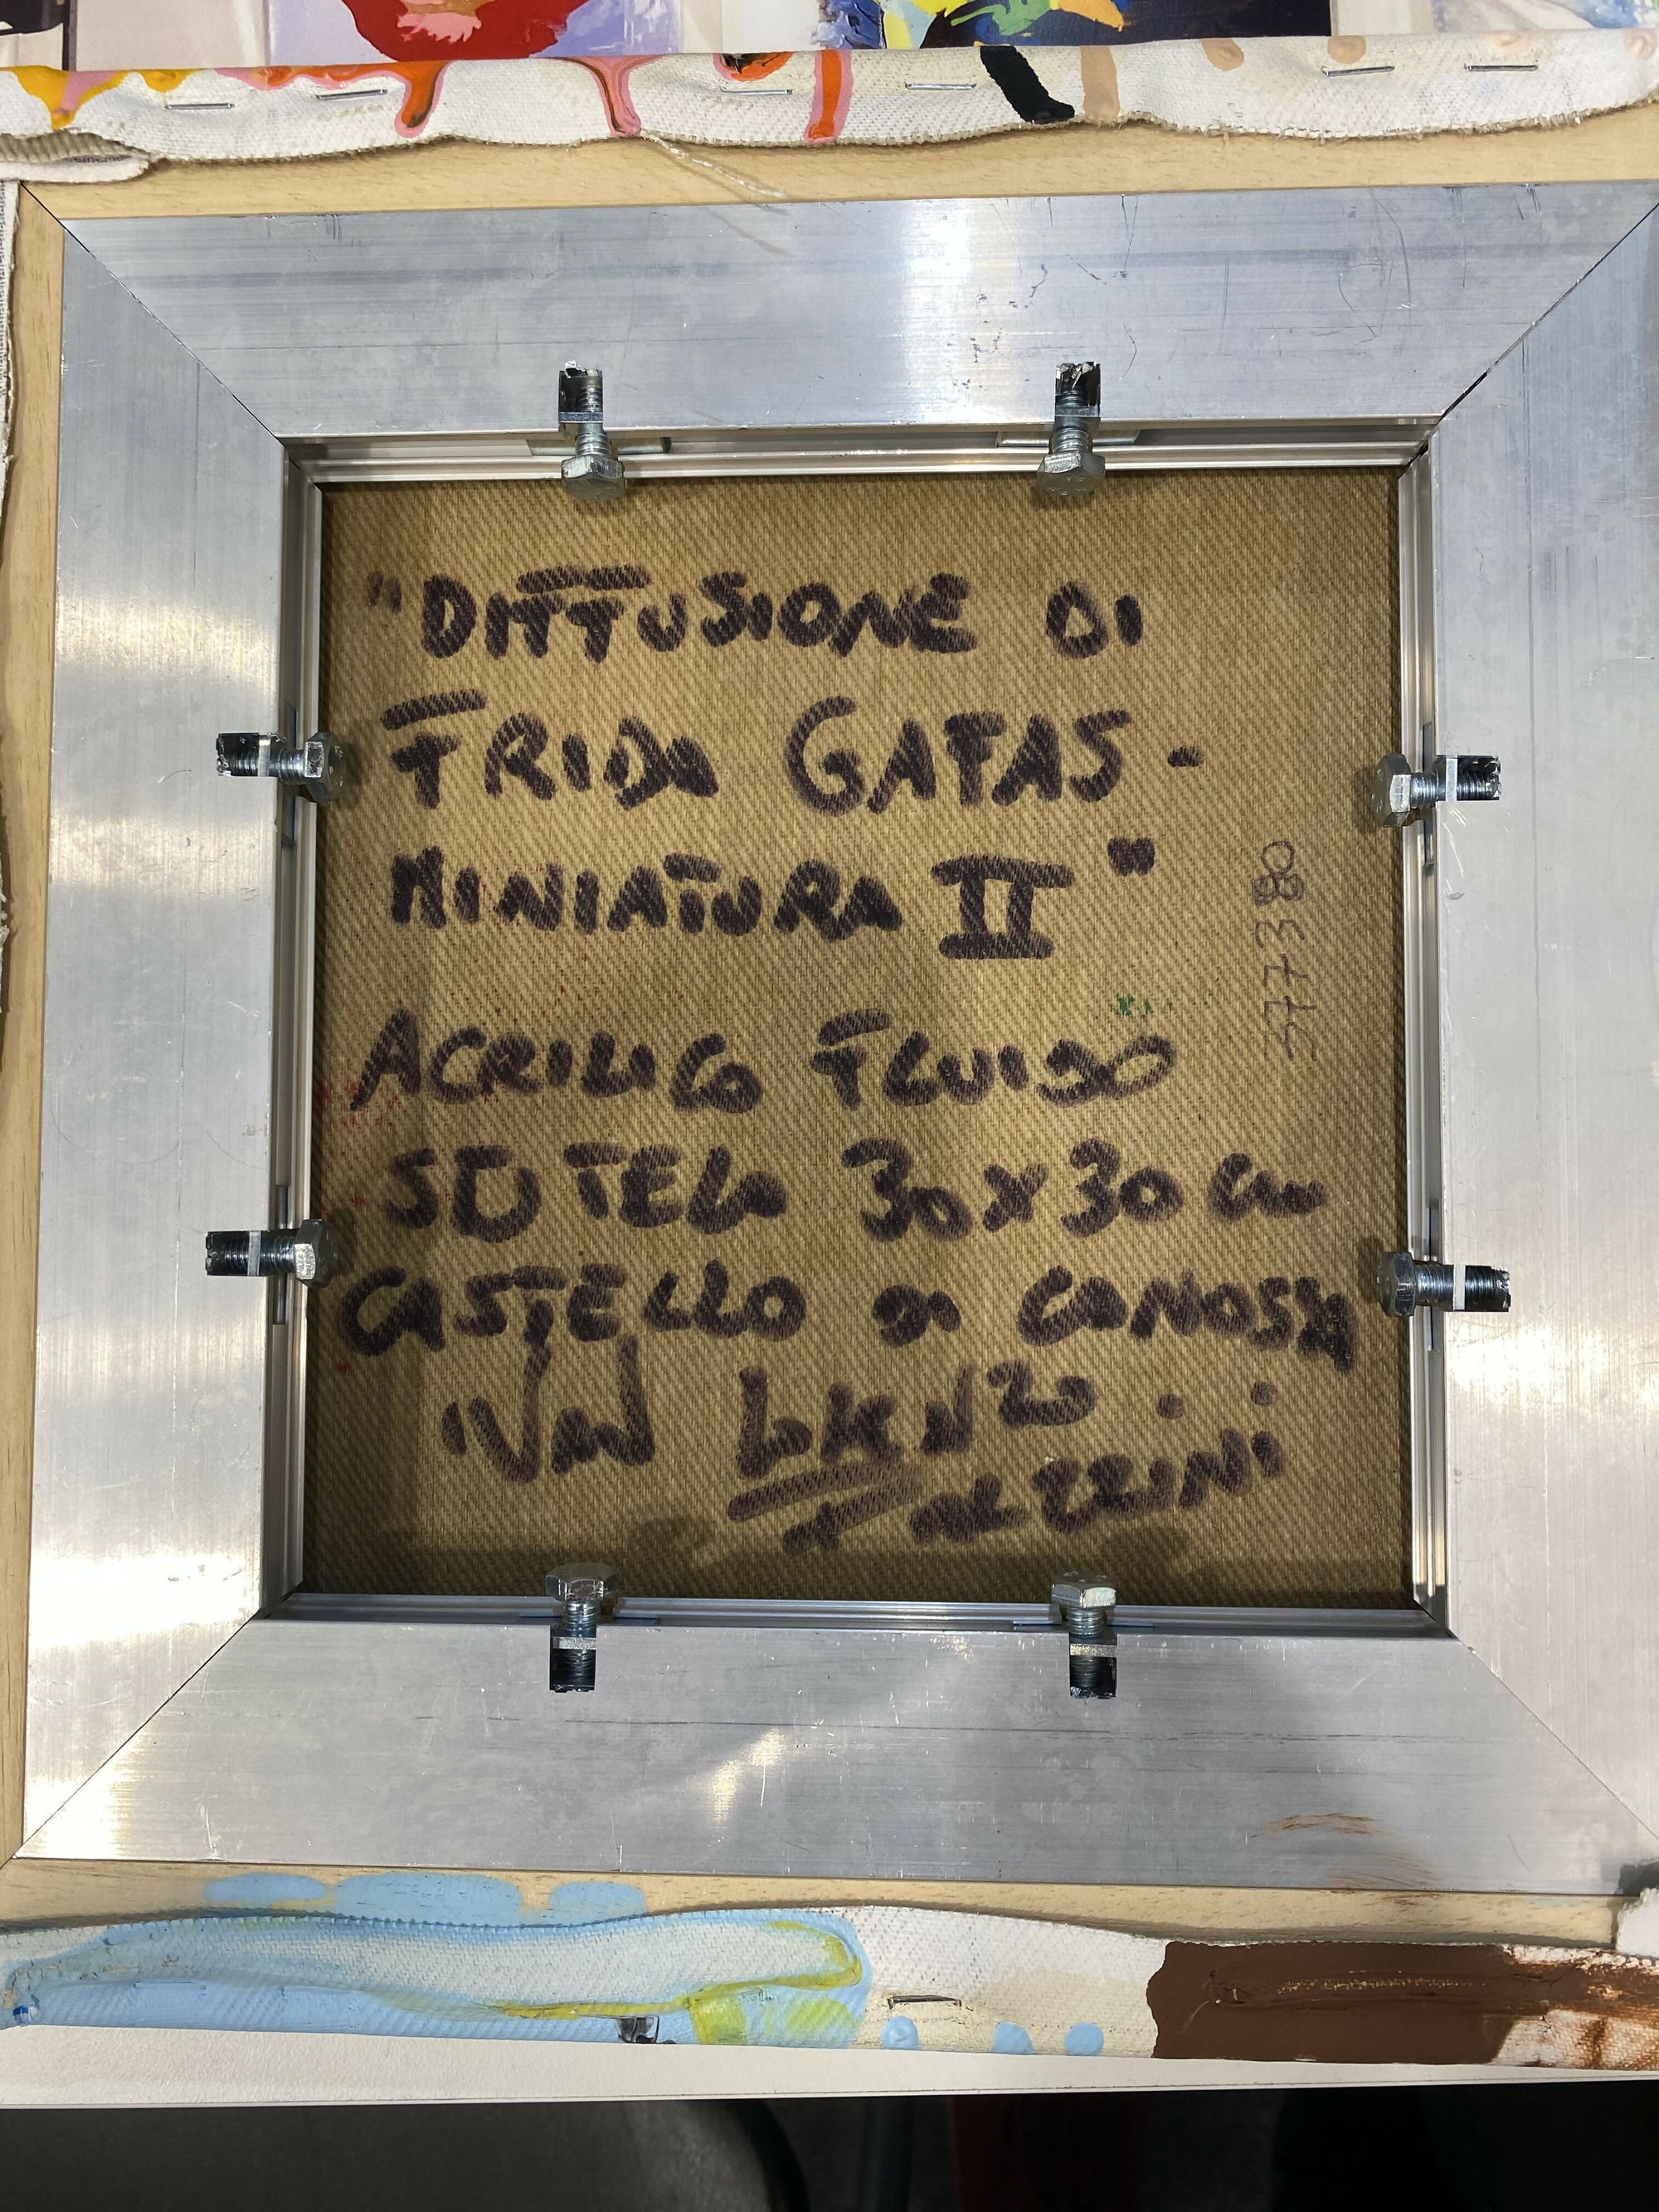 "DIFFUSIONE DI
FRIDA GAFAS -
MINIATURA II"
ACRILICO FLUIDO
SU TELA 30x30 cm
CASTELLO DI CANOSSA
377380